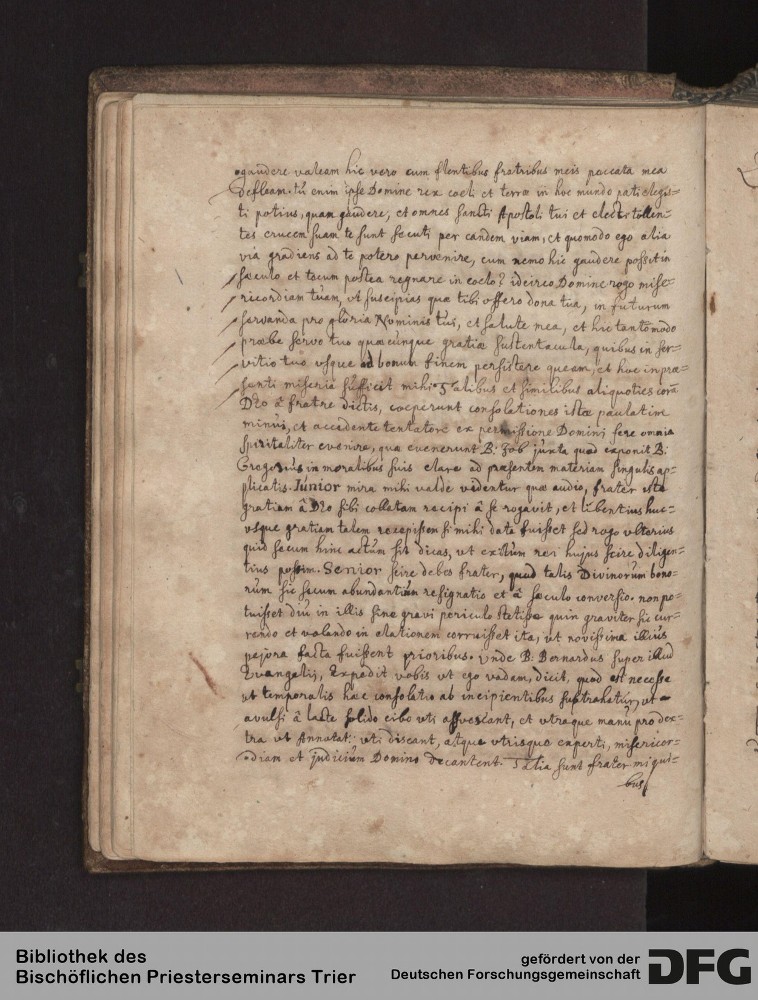 gaudere valeam hic vero cum flentibus fratribus meis peccata mea
defleam. tu enim ipse Domine rex coeli et terrae in hoc mundo pati elegis=
ti potius, quam gaudere, et omnes sancti Apostoli tui et electi tollen=
tes crucem suam te sunt secuti per eandem viam, et quomodo ego alia
via gradiens ad te potero pervenire, cum nemo hic gaudere possit in
saeculo et tecum postea regnare in coelo? idcirco Domine rogo mise=
ricordiam tuam, ut suscipias quae tibi offero dona tua, in futurum
servanda pro gloria Nominis tui, et salute mea, et hic tantomodo
praebe servo tuo quaecunque gratiae sustentacula, quibus in ser=
vitio tuo usque ad bonum finem persistere queam, et hoc in prae=
senti miseria sufficit mihi. Talibus et similibus aliquoties corā
Deo â fratre dictis, coeperunt consolationes istae paulatim
minui, et accedente tentatore ex permissione Domini fere omnia
spiritaliter evenire, quae evenerunt B: Job juxta quod exponit B:
Gregorius in moralibus suis clare ad praesentem materiam singulis ap=
plicatis. Junior mira mihi valde videntur quae audio, frater iste
gratiam â Deo sibi collatam recipi â se rogavit, et libentius huc=
usque gratiam talem recepissem si mihi data fuisset sed rogo ulterius
quid secum hinc actum sit dicas, ut exitum rei hujus scire diligen=
tius possim. Senior scire debes frater, quod talis Divinorum bono=
rum sic secum abundantium resignatio et â saeculo conversio. non po=
tuisset diu in illis sine gravi periculo stetisse quin graviter sic cur=
rendo et volando in elationem corruisset ita, ut novissima illius
pejora facta fuissent prioribus. unde B. Bernardus super illud
Evangelij, Expedit vobis ut ego vadam, dicit, quod est necesse
ut temporalis haec consolatio ab incipientibus subtrahatur, ut
avulsi â lacte solido cibo uti assuescant, et utraque manu pro dex=
tra ut Annotat: uti discant, atque utrisque experti, misericor=
diam et judicium Domino decantent. Talia sunt frater mi qui=
bus
Bibliothek des
Bischöflichen Priesterseminars Trier
gefördert von der
Deutschen Forschungsgemeinschaft
DFG